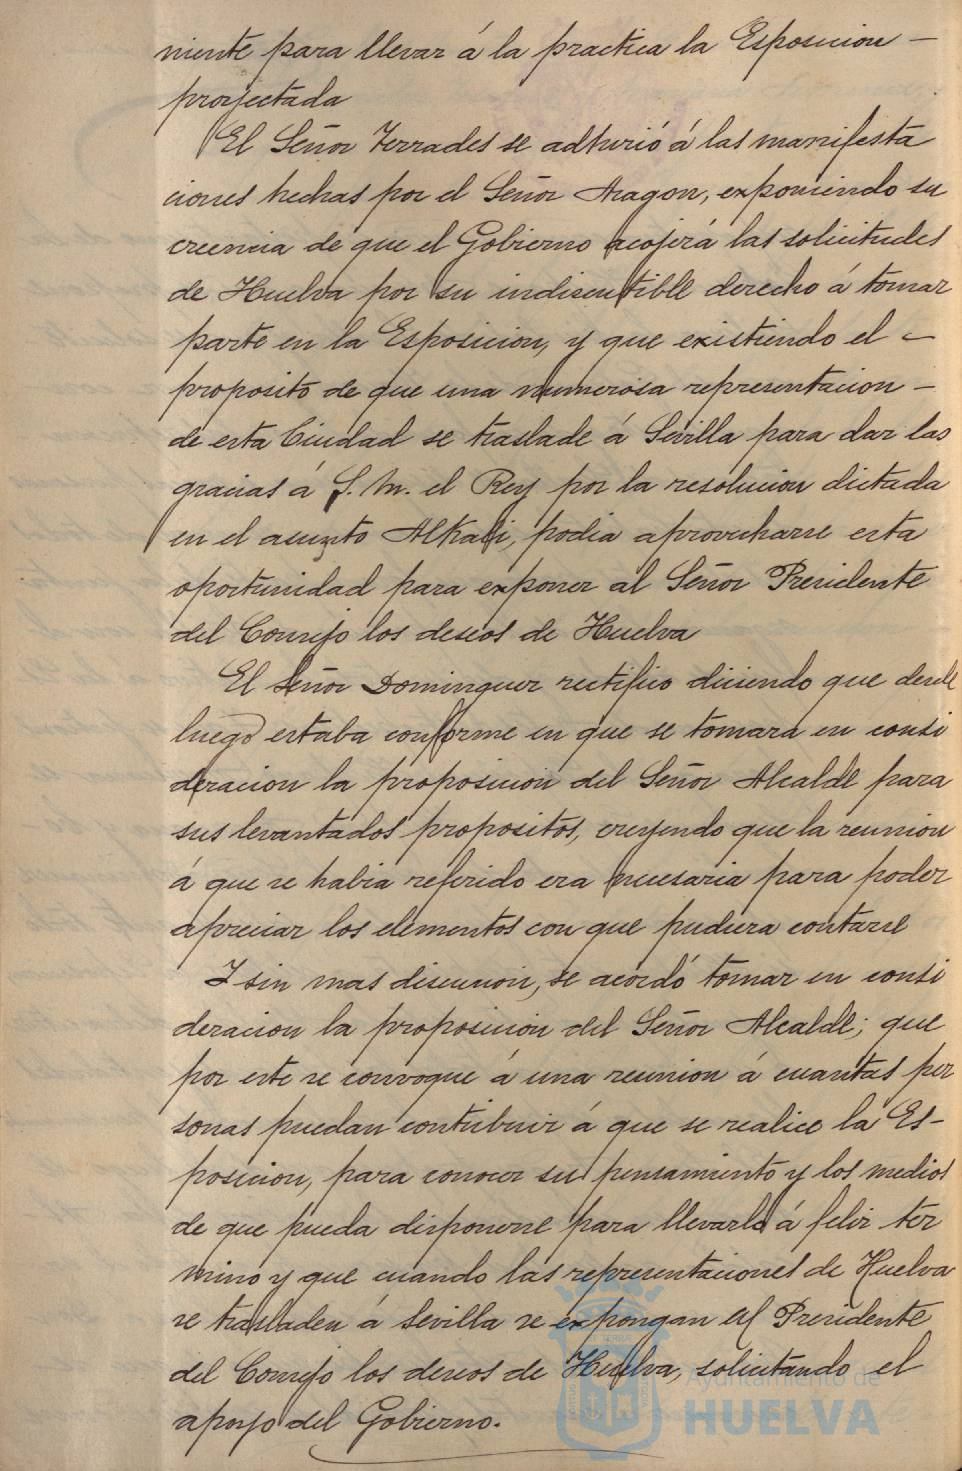 niente para llevar á la practica la Esposicion —
proyectada
El Señor Terrades se adhirió á las manifesta
ciones hechas por el Señor Aragon, exponiendo su
creencia de que el Gobierno acojerá las solicitudes
de Huelva por su indiscutible derecho á tomar
parte en la Esposicion, y que existiendo el —
proposito de que una numerosa representacion —
de esta Ciudad se traslade á Sevilla para dar las
gracias á S. M. el Rey por la resolucion dictada
en el asunto Alkali, podia aprovecharse esta
oportunidad para exponer al Señor Presidente
del Consejo los deseos de Huelva
El Señor Dominguez rectifico diciendo que desde
luego estaba conforme en que se tomara en consi
deracion la proposicion del Señor Alcalde para
sus levantados propositos, creyendo que la reunion
á que se habia referido era necesaria para poder
apreciar los elementos con que pudiera contarse
Y sin mas discusion, se acordó tomar en consi
deracion la proposicion del Señor Alcalde; que
por este se convoque á una reunion á cuantas per
sonas puedan contribuir á que se realice la Es-
posicion, para conocer su pensamiento y los medios
de que pueda disponerse para llevarla á feliz ter
mino y que cuando las representaciones de Huelva
se trasladen á Sevilla se expongan al Presidente
del Consejo los deseos de Huelva, solicitando el
apoyo del Gobierno.
Ayuntamiento de
HUELVA